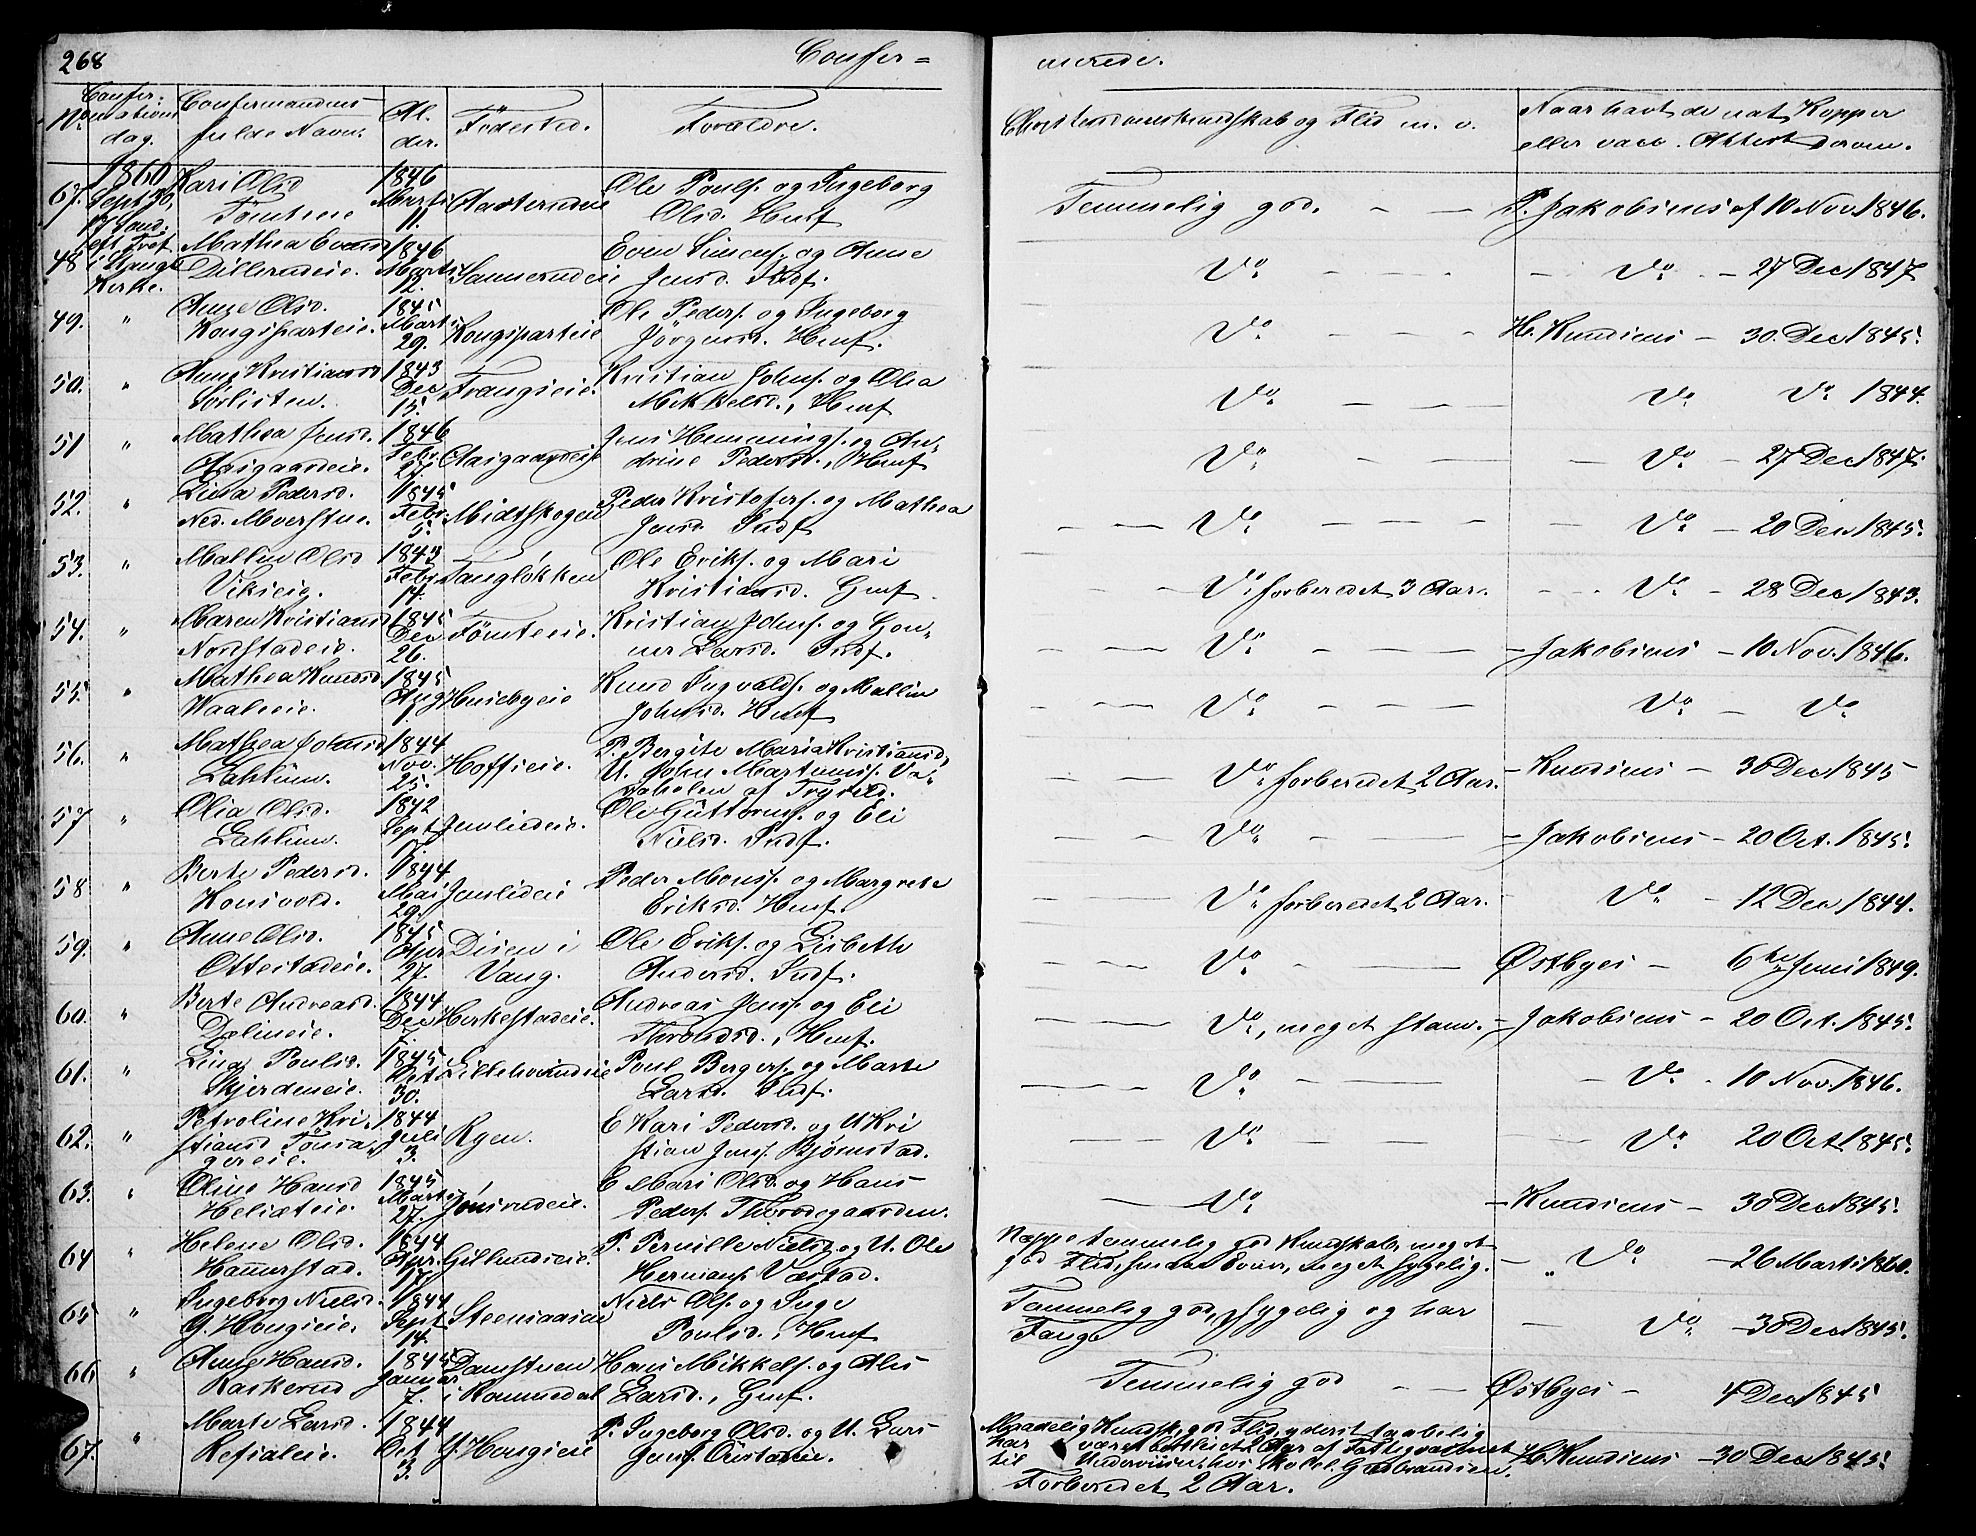 268 Confir= merede.
No. Confirmations dag. Confirmandens fulde Navn. Al- der. Födested. Forældre. Christendomskundskab og Flid m. v. Naar havt de nat. Kopper eller vacc. Attest derom.
1860 Sept 30, 17 Sönd: eft. Tref. i Stange Kirke.
47. Kari Olsd. Tömteeie 1846 Marts 11. Aasterudeie Ole Pouls. og Ingeborg Olsd. Husf Temmelig god. P. Jakobsens af 10 Nov. 1846.
48 Mathea Evensd Dillerudeie. 1846 Marts 12. Sannerudeie Even Simens. og Anne Jensd. Indf. Do Do 27 Dec 1847
49. " Anne Olsd. Kongsparteie. 1845 Marts 29. Kongsparteie Ole Peders. og Ingeborg Jörgensd. Husf. Do H. Knudsens 30. Dec 1845.
50. " Anne Kristiansd Sorlisten. 1843 Dec 15. Frangseie. Kristian Johns. og Olea Mikkelsd., Husf Do Do Do 1844.
51 " Mathea Jensd. Aasgaardeie. 1846 Febr. 25. Aasgaardeie Jens Hemmings. og An- drine Pedersd., Husf Do Do 27 Dec 1847.
52. " Lina Pedersd. Ned. Moerstue. 1845 Febr. 5. Midtskogen Peder Kristofers. og Mathea Jensd Indf Do Do 20 Dec 1845.
53. " Mallin Olsd Vikseie. 1843 Febr 14. Tanglökken Ole Eriks. og Mari Kristiansd. Gmf. Do forberedet 3 Aar. Do 28 Dec 1843.
54. " Maren Kristiansd Nordstadeie. 1845 Dec 26. Tömteeie. Kristian Johns. og Gon- ner Larsd. Indf. Do Jakobsens 10 Nov. 1846.
55. " Mathea Knudsd. Waaleeie. 1845 Aug 1. Husebyeie Knud Ingvalds. og Mallin Johnsd. Husf Do Do Do
56. " Mathea Johnsd Lahlum. 1844 Nov. 25. Hoffseie. P. Bergite Maria Kristiansd, U. John Martinus. af Trysild. Do forberedet 2 Aar. Knudsens 30 Dec 1845
57 " Olia Olsd. Lahlum. 1842 Sept Jemlieeie. Ole Guttorms. og Eli Nielsd. Indf. Do Jakobsens 20 Oct. 1845.
58 " Berte Pedersd. Konsvold. 1844 Mai 29. Jemlideie Peder Mons. og Margrete Eriksd. Husf. Do forberedet 2 Aar. Do 12 Dec 1844.
59. " Anne Olsd. Ottestadeie. 1845 Apr 27. Disen i Vang. Ole Eriks. og Lisbeth Andersd. Indf. Do Østbyes 6te Juni 1849.
60. " Berte Andreasd. Dælineie. 1844 Dec 1. Herkestadeie. Andreas Jens. og Eli Thoralsd., Husf. Do, meget stam. Jakobsens 20 Oct. 1845.
61. " Lina Poulsd. Skjerdeneie. 1845 Oct 30. Lillehvindeie Poul Bergers. og Marte Larsd. Indf. Do Do 10 Nov. 1846.
62. " Petroline Kri- stiansd Tönsa- gereie. 1844 Juli 3. Ryen. E Kari Pedersd. og U Kri stian Jens. Bjørnstad. Do Do 20 Oct 1845.
63. " Oline Hansd Heliæteie. 1845 Marts 27. Jönsrudeie. E Mari Olsd. og Hans Peders. Thorodegaarden. Do Knudsens 30 Dec 1845.
64 " Helene Olsd. Hammerstad. 1844 Apr. 17. Gillundeie. P. Pernille Nielsd. og U. Ole Hermans. Væstad. Neppe temmelig god Kundskab, meget god Flid, smaa Evner, meget sygelig. Do 26 Marts 1860.
65 " Ingeborg Nielsd. G. Hougseie. 1844 Sept 14. Steensaasen Niels Ols. og Inge Poulsd., Husf Temmelig god, sygelig og har Tange Do 30 Dec 1845.
66 " Anne Hansd. Raskerud 1845 Januar 7. Damstuen i Romedal Hans Mikkels. og Alis Larsd., Gmf. Temmelig god Østbyes 4 Dec 1845
67. " Marte Larsd. Refsaleie. 1844 Oct 3. N. Hougseie P. Ingeborg Olsd. og U. Lars Jens. Maadelig Kundsk. god Flid, yderst taabelig har været 2 Aar af Fattigvæsenet til Underviisn. hos Skolel. Gulbrandsen. Forberedet 2 Aar. H. Knudsens 30 Dec 1845.